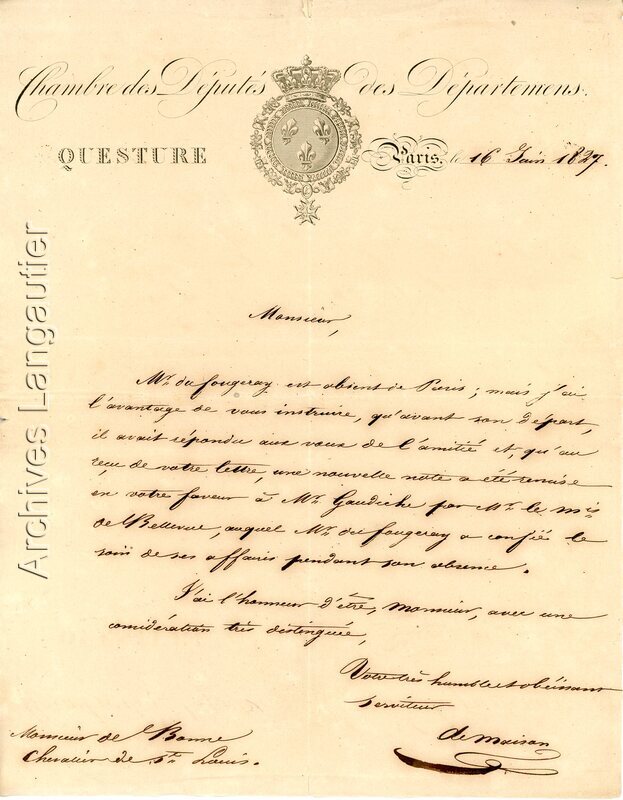 Chambre des Députés des Départemens.
QUESTURE
Paris, le 16 Juin 1827.
Monsieur,
Mr. du fougeray est absent de Paris ; mais j'ai
l'avantage de vous instruire, qu'avant son départ,
il avait répondu aux vœux de l'amitié et, qu'au
reçu de votre lettre, une nouvelle note a été remise
en votre faveur à Mr. Gaudiche par Mr. le mis
de Bellevue, auquel Mr. du fougeray a confié le
soin de ses affaires pendant son absence.
J'ai l'honneur d'être, monsieur, avec une
considération très distinguée,
Votre très humble et obéissant
serviteur
de maison
Monsieur de Bonne
Chevalier de St. Louis.
Archives Langautier